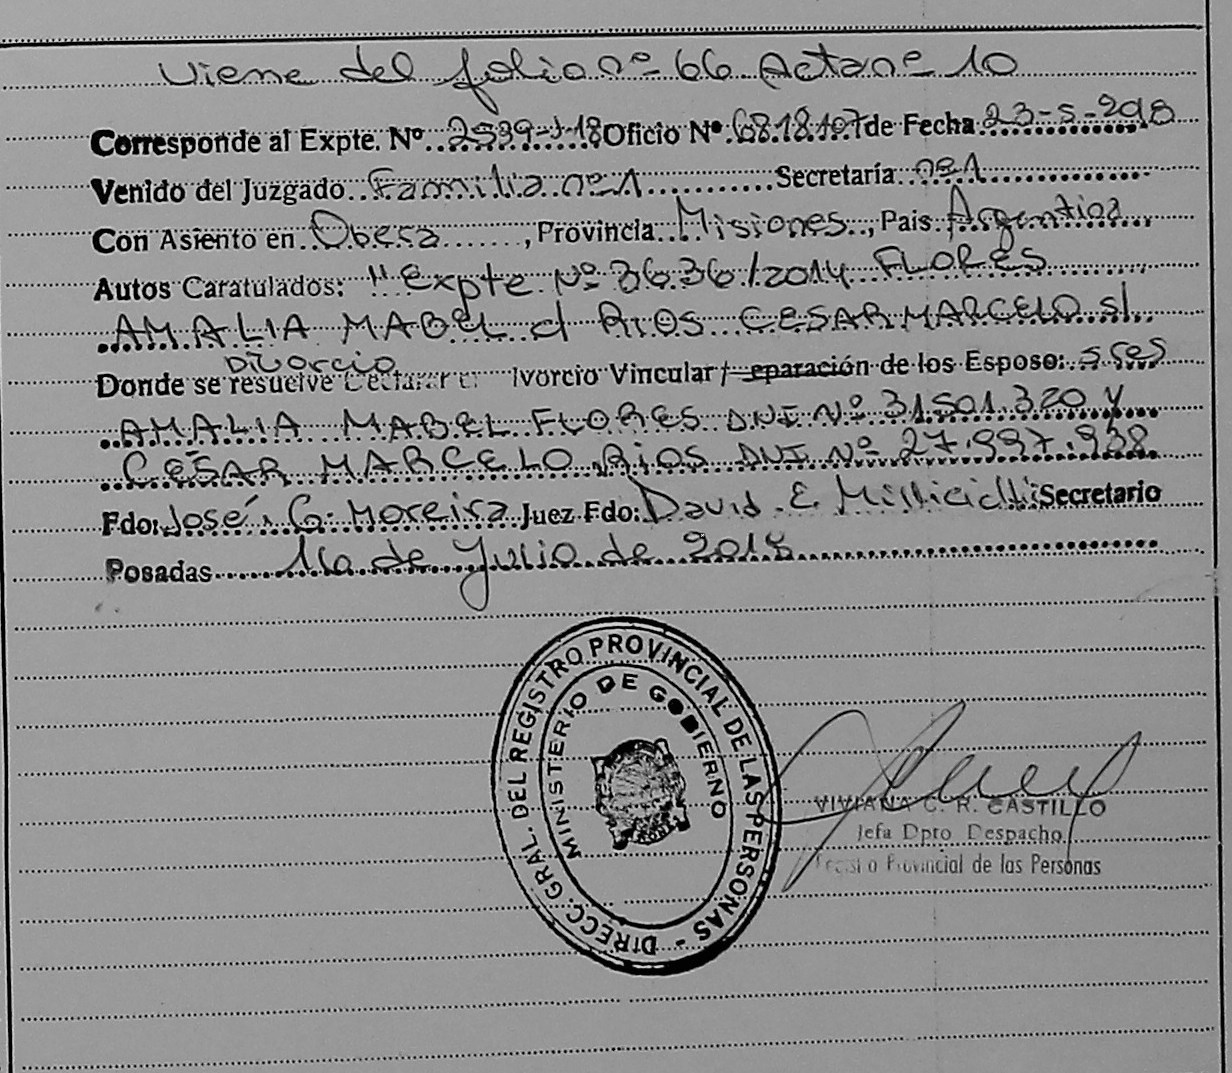 Viene del folio nº 66 Acta nº 10
Corresponde al Expte. Nº 2539-J-18 Oficio Nº 6818107 de Fecha 23-5-2018
Venido del Juzgado Familia nº1 Secretaría nº1
Con Asiento en Obera, Provincia Misiones, Pais Argentina
Autos Caratulados: "Expte Nº 3636/2014 FLORES
AMALIA MABEL c/ RIOS CESAR MARCELO s/
Divorcio
Donde se resuelve Declarar el Divorcio Vincular / eparación de los Esposo: Sres
AMALIA MABEL FLORES DNI Nº 31.501.320 y
CÉSAR MARCELO RIOS DNI Nº 27.997.938
Fdo: José G. Moreira Juez Fdo: David E Secretario
Posadas 16 de Julio de 2018
DIRECC. GRAL. DEL REGISTRO PROVINCIAL DE LAS PERSONAS -
MINISTERIO DE GOBIERNO
VIVIANA C. R. CASTILLO
Jefa Dpto Despacho
Registro Provincial de las Personas